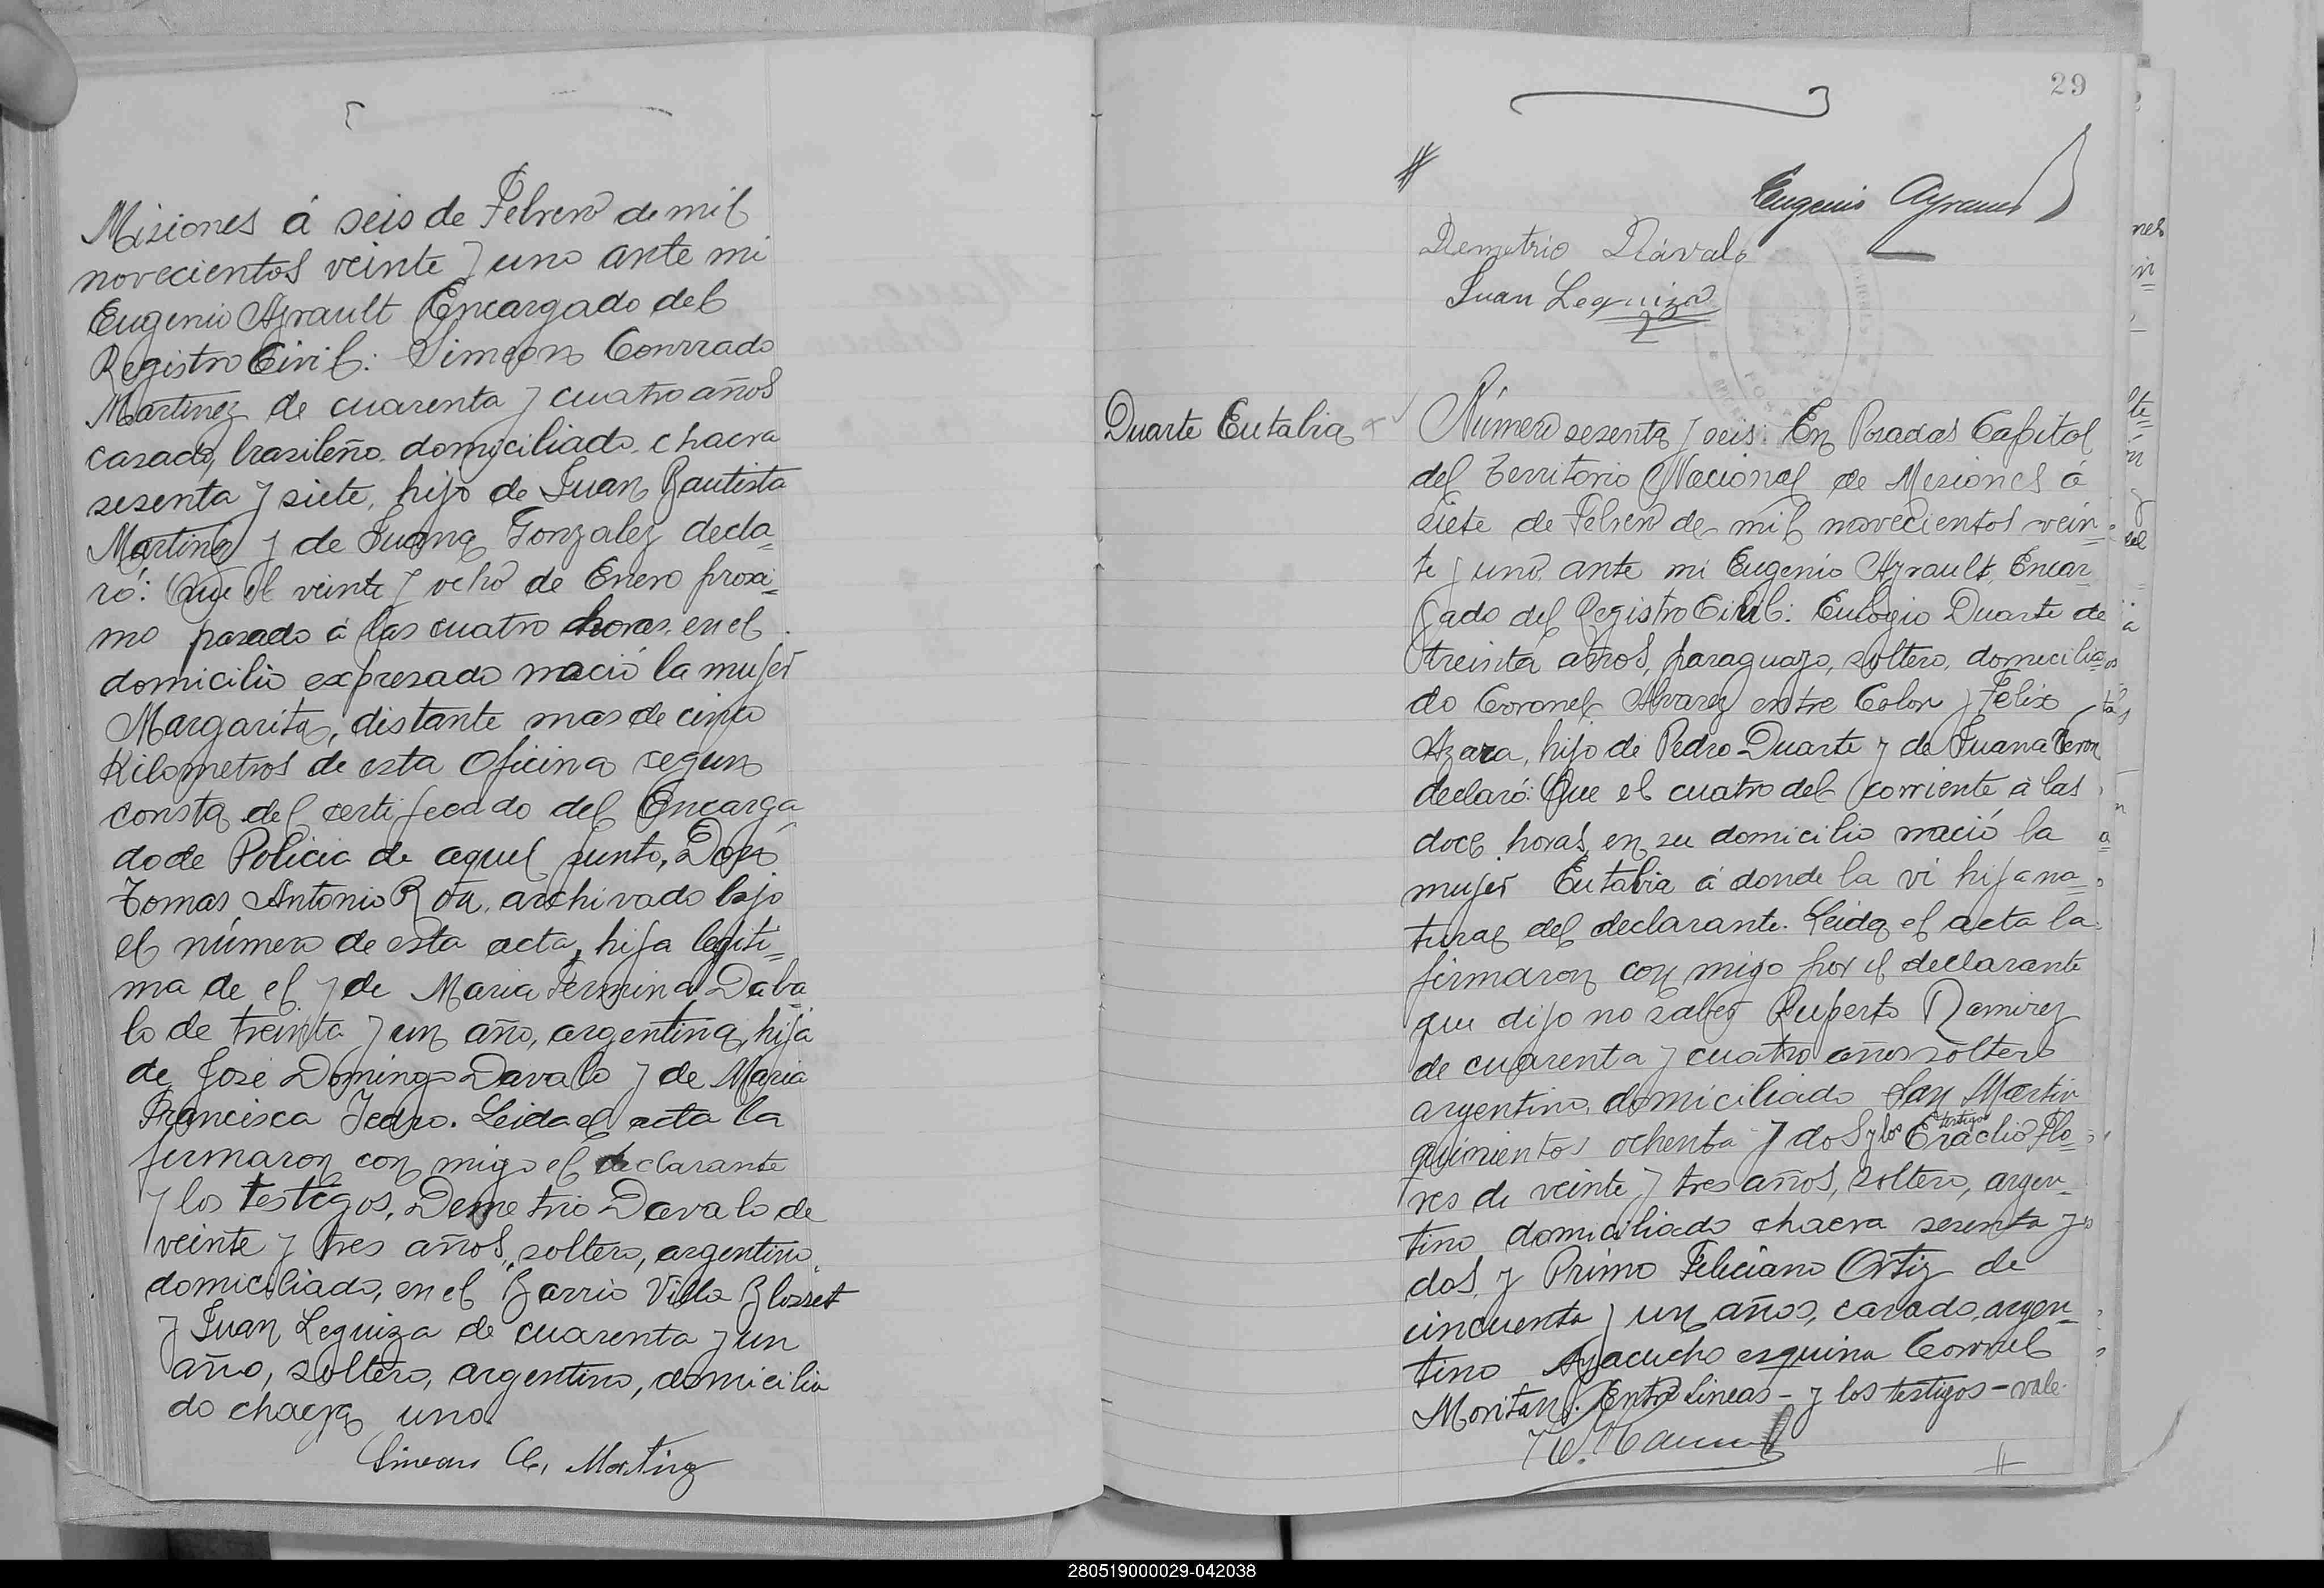 Misiones á seis de Febrero de mil
novecientos veinte y uno ante mi
Eugenio Ayrault Encargado del
Registro Civil: Simeon Conrrado
Martinez de cuarenta y cuatro años
casado, brasileño domiciliado chacra
sesenta y siete, hijo de Juan Bautista
Martinez y de Juana Gonzalez decla=
ró: Que el veinte y ocho de Enero proxi=
mo pasado á las cuatro horas, en el
domicilio expresado nació la mujer
Margarita, distante mas de cinco
Kilometros de esta Oficina segun
consta del certificado del Encarga=
do de Policia de aquel punto, Don
Tomas Antonio Roa, archivado bajo
el número de esta acta, hija legiti=
ma de el y de Maria Fermina Daba=
lo de treinta y un año, argentina, hija
de José Domingo Davalo y de Maria
Francisca. Leida el acta la
firmaron con migo el declarante
y los testigos, Demetrio Davalo de
veinte y tres años, soltero, argentino,
domiciliado, en el Barrio Villa Blosset
y Juan Leguiza de cuarenta y un
año, soltero, argentino, domicilia
do chacra uno.
Simeon C. Martinez
29
Eugenio Ayrault
Demetrio Dávalo
Juan Leguiza
Duarte Eutalia
Número sesenta y seis: En Posadas Capital
del Territorio Nacional de Misiones á
siete de Febrero de mil novecientos vein=
te y uno, ante mi Eugenio Ayrault, Encar
gado del Registro Civil: Eulogio Duarte de
treinta años, paraguayo, soltero, domicilia
do Coronel Alvarez entre Colon y Felix
Azara, hijo de Pedro Duarte y de Juana Veron
declaró: Que el cuatro del corriente á las
doce horas, en su domicilio nació la
mujer Eutalia á donde la vi hija na=
tural del declarante. Leida el acta la
firmaron con migo por el declarante
que dijo no saber Ruperto Ramirez
de cuarenta y cuatro años soltero
argentino, domiciliado San Martin
quinientos ochenta y dos y los testigos Eraclio Flo=
res de veinte y tres años, soltero, argen=
tino domiciliado chacra sesenta y
dos, y Primo Feliciano Ortiz de
cincuenta y un años, casado, argen=
tino Ayacucho esquina Coronel
Moritan. Entre lineas - y los testigos - vale.
280519000029-042038